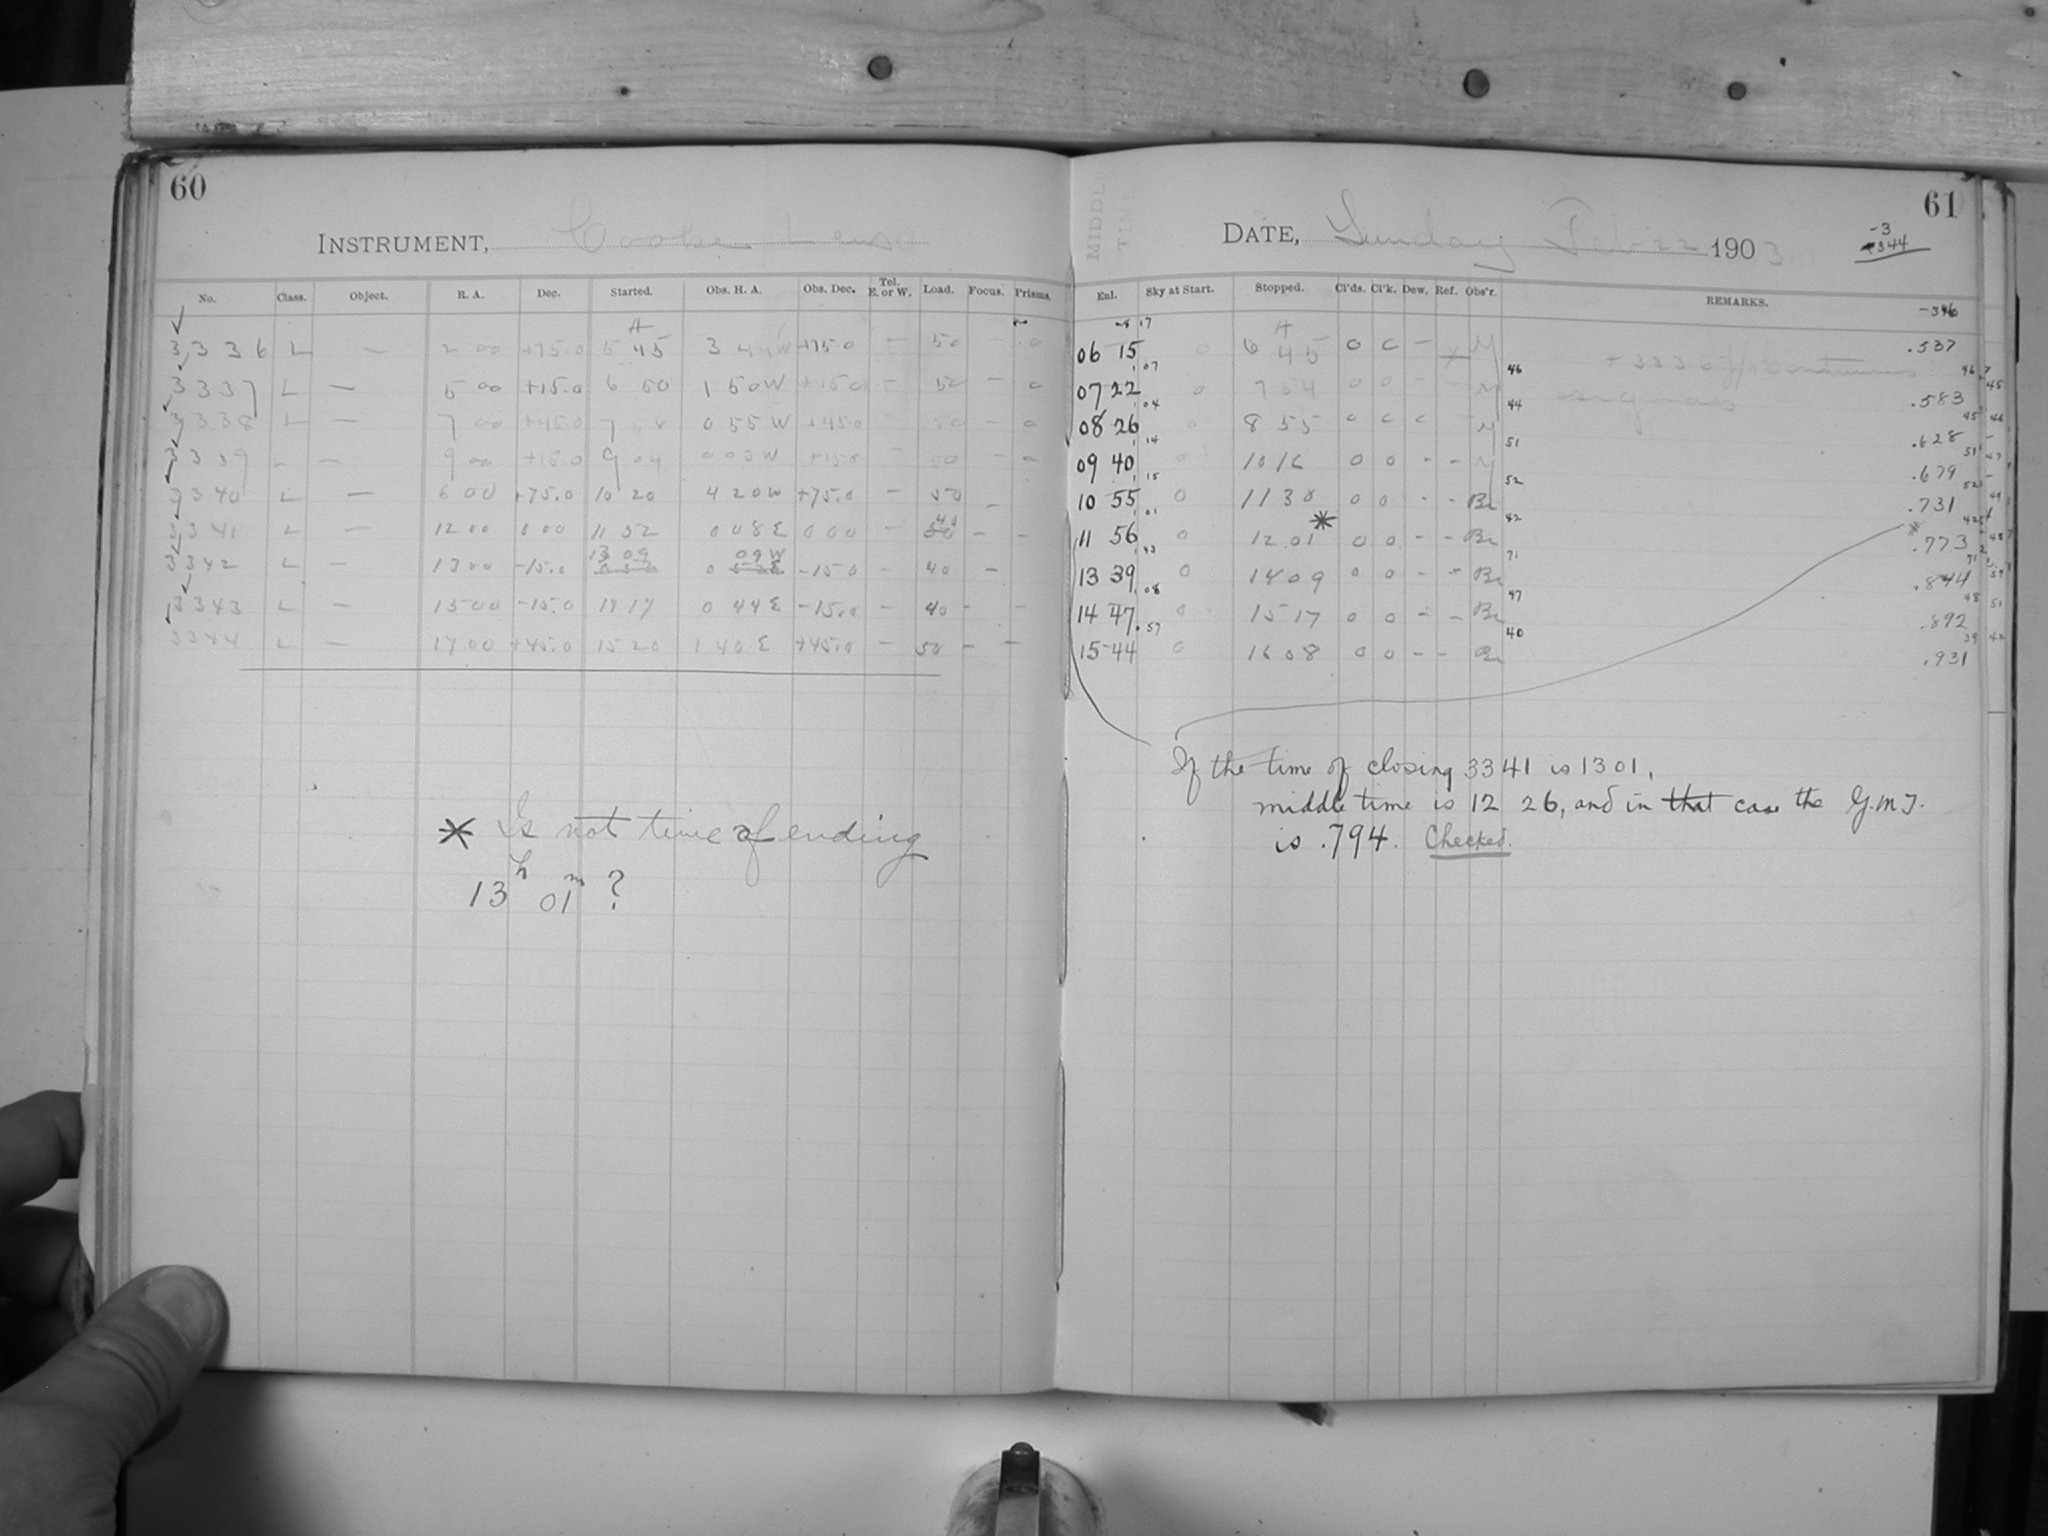 60
INSTRUMENT, Cooke Lens
No. Class. Object. R. A. Dec. Started. Obs. H. A. Obs. Dec. Tel. E. or W. Load. Focus. Prisms.
3336 L — 2 00 +75.0 5 45 3 44 W +75.0 - 50 - 0
3337 L — 5 00 +15.0 6 50 1 50 W +15.0 - 50 - 0
3338 L — 7 00 +45.0 7 58 0 55 W +45.0 50 - 0
3339 L — 9 00 +15.0 9 04 0 03 W +15.0 - 50 - 0
3340 L — 6 00 +75.0 10 20 4 20 W +75.0 - 50 -
3341 L — 12 00 0 00 11 52 0 08 E 0 00 - 40 - -
3342 L — 13 00 -15.0 13 09 0 09 W -15.0 - 40 -
3343 L — 15 00 -15.0 14 17 0 44 E -15.0 - 40 - -
3344 L — 17 00 +45.0 15 20 1 40 E +45.0 - 50 - -
* Is not time of ending
13h 01m ?
61
DATE, Sunday Feb 22 1903
-3
344
Enl. Sky at Start. Stopped. Cl'ds. Cl'k. Dew. Ref. Obs'r. REMARKS.
-346
06 15 0 6 45 0 0 - M + 3336 .537
07 22 0 7 54 0 0 - - M signals .583
08 26 0 8 55 0 0 0 - M .628
09 40 0 10 16 0 0 - - M .679
10 55 0 11 30 0 0 - - Br .731
11 56 0 12 01 * 0 0 - - Br * .773
13 39 0 14 09 0 0 - - Br .844
14 47 0 15 17 0 0 - - Br .892
15 44 0 16 08 0 0 - - Br .931
If the time of closing 3341 is 13 01,
middle time is 12 26, and in that case the G.M.T.
is .794. Checked.